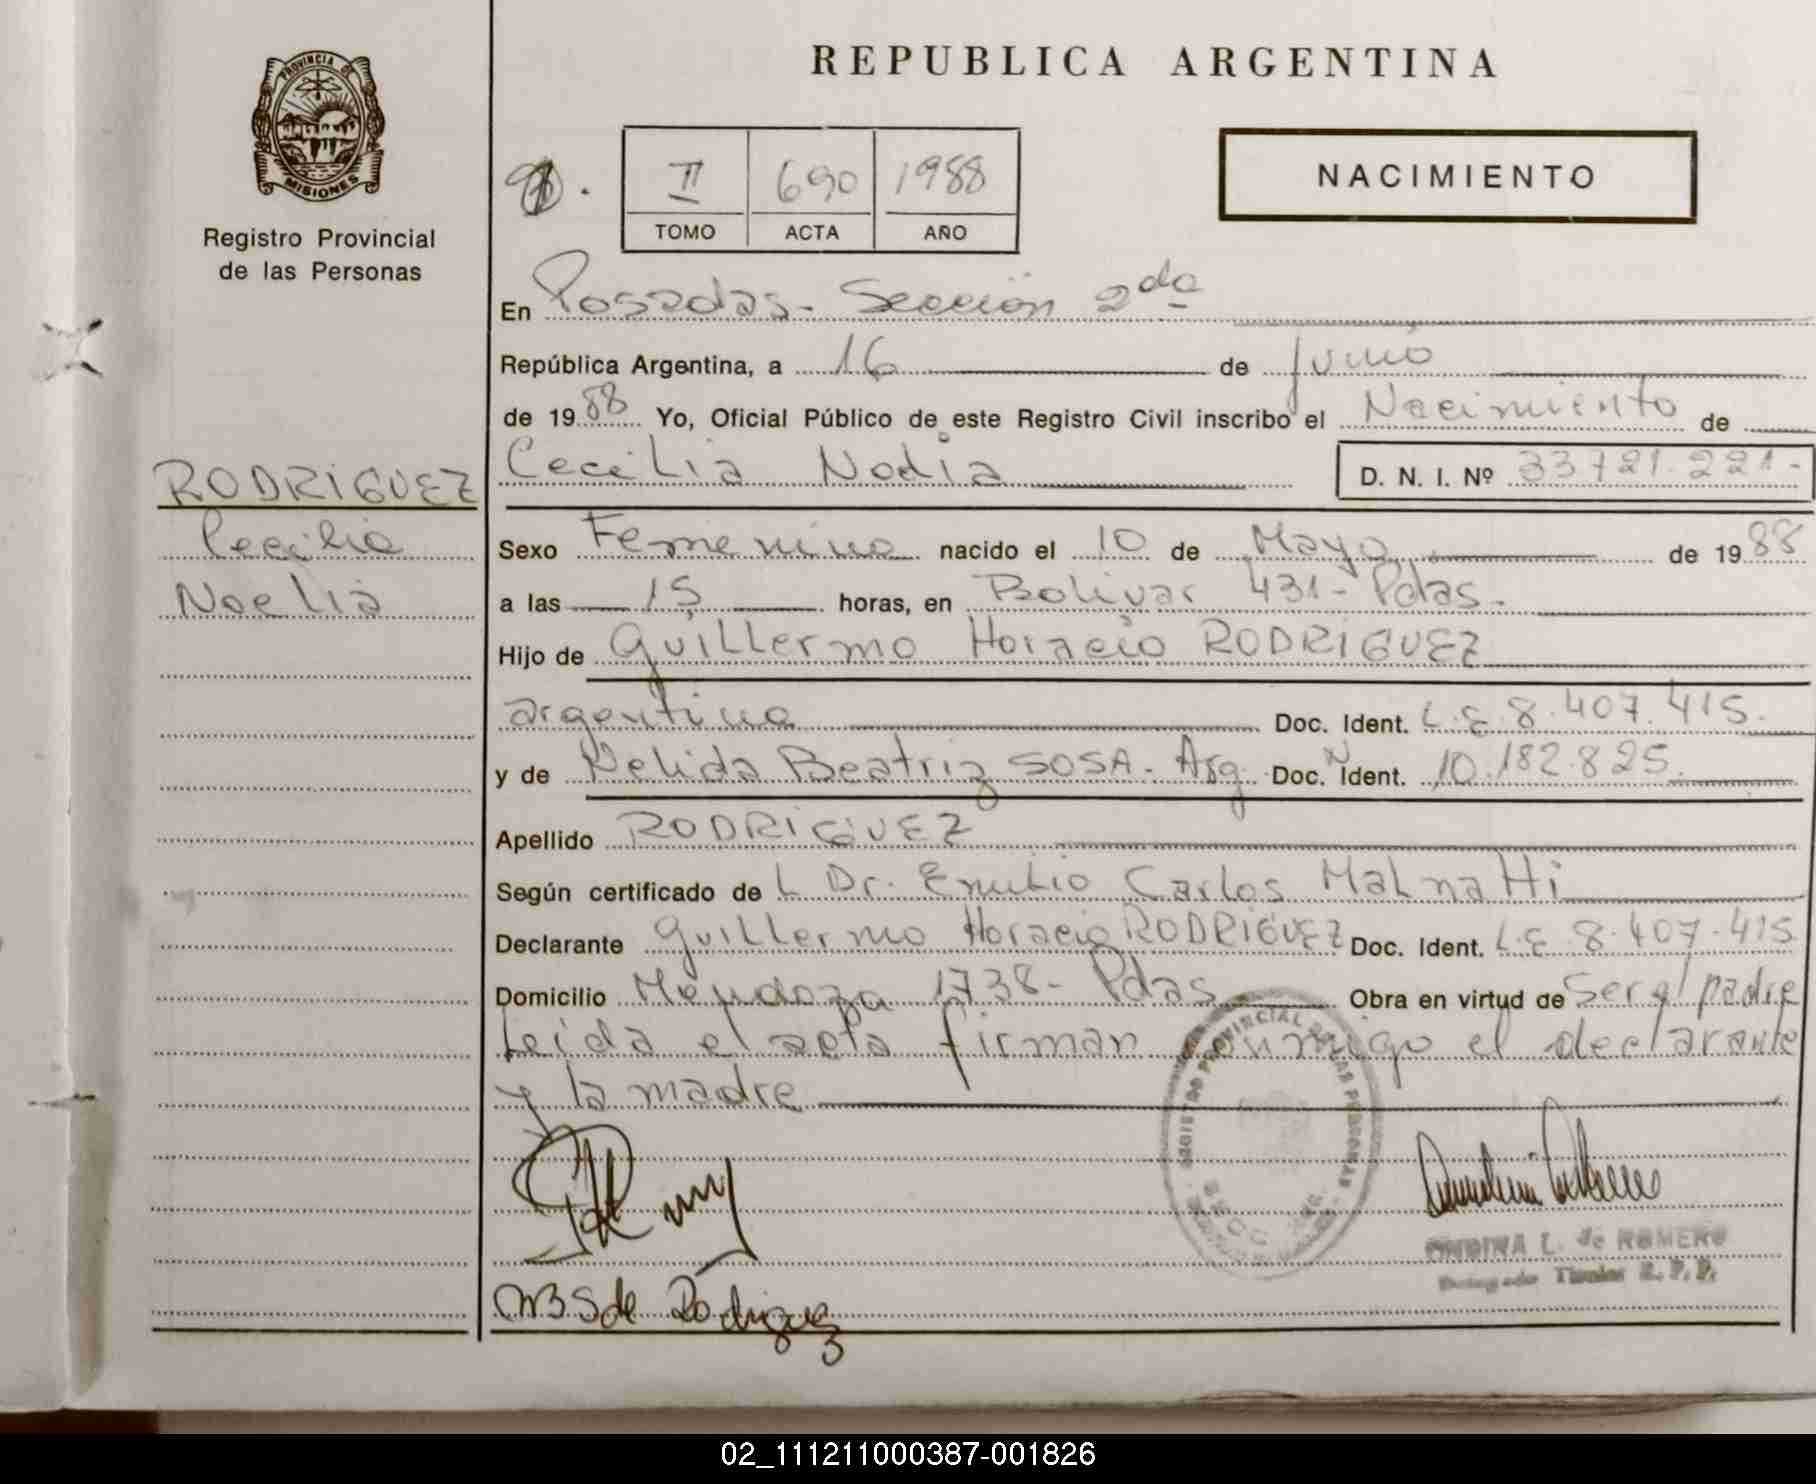 REPUBLICA ARGENTINA
PROVINCIA DE
MISIONES
Registro Provincial
de las Personas
II 690 1988
TOMO ACTA AÑO
NACIMIENTO
En Posadas - Sección 2da
República Argentina, a 16 de Junio
de 1988 Yo, Oficial Público de este Registro Civil inscribo el Nacimiento de
Cecilia Noelia D. N. I. Nº 33721.221-
RODRIGUEZ
Cecilia
Noelia
Sexo Femenino nacido el 10 de Mayo de 1988
a las 15 horas, en Bolivar 431 - Pdas.
Hijo de Guillermo Horacio RODRIGUEZ
argentino Doc. Ident. L.E. 8.407.415.
y de Nelida Beatriz SOSA - Arg. Doc. Ident. N 10.182.825.
Apellido RODRIGUEZ
Según certificado de L Dr. Emilio Carlos Malnatti
Declarante Guillermo Horacio RODRIGUEZ Doc. Ident. L.E 8.407.415
Domicilio Mendoza 1738 - Pdas Obra en virtud de Ser el padre
Leida el acta firman conmigo el declarante
y la madre
REGISTRO PROVINCIAL DE LAS PERSONAS
ONDINA L. de ROMERO
Delegado Titular R. P. P.
NBS de Rodriguez
02_111211000387-001826